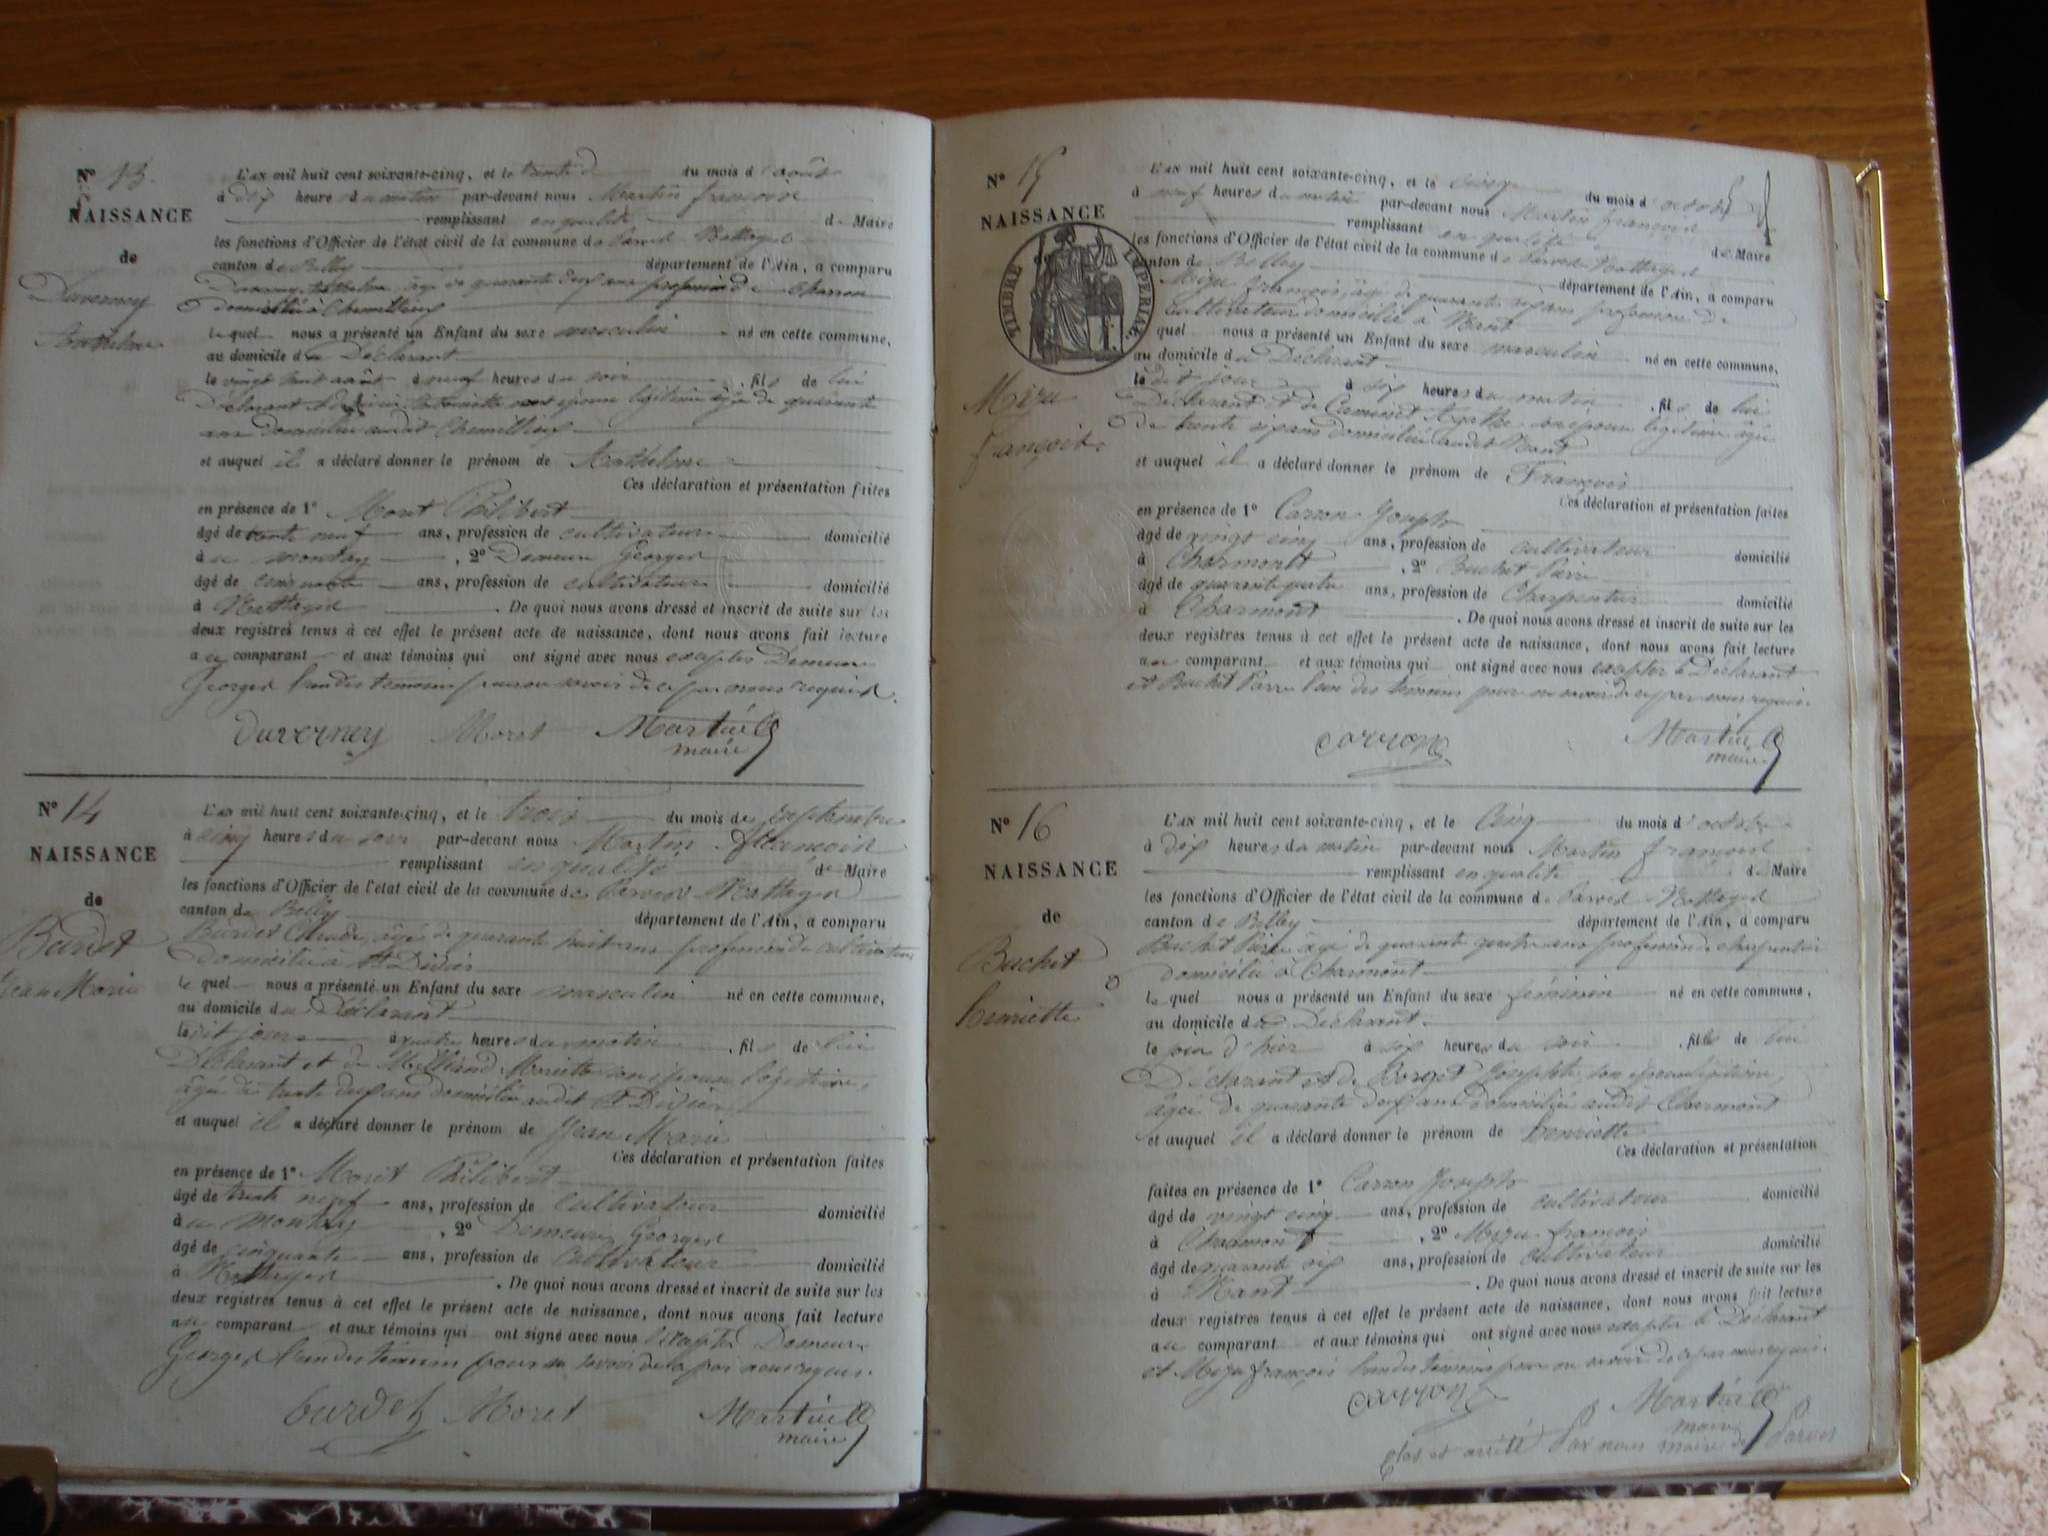 N° 13.
NAISSANCE
de
Duverney
Anthelme
L'AN mil huit cent soixante-cinq, et le trente du mois d'août
à dix heures du matin par-devant nous Martin françois
remplissant en qualité de Maire
les fonctions d'Officier de l'état civil de la commune de Parves Nattages
canton de Belley département de l'Ain, a comparu
Duverney Anthelme âgé de quarante deux ans profession de Charron
domicilié à Chemillieu
lequel nous a présenté un Enfant du sexe masculin né en cette commune,
au domicile du Déclarant
le vingt huit août à neuf heures du soir , fils de lui
Déclarant épouse légitime âgée de quarante
ans domiciliée audit Chemillieu
et auquel il a déclaré donner le prénom de Anthelme
Ces déclaration et présentation faites
en présence de 1° Moret Philibert
âgé de trente neuf ans, profession de cultivateur domicilié
à au montay , 2° Demeure Georges
âgé de cinquante ans, profession de cultivateur domicilié
à Nattages . De quoi nous avons dressé et inscrit de suite sur les
deux registres tenus à cet effet le présent acte de naissance, dont nous avons fait lecture
au comparant et aux témoins qui ont signé avec nous excepter Demeure
Georges l'un des témoins pour ne savoir de ce par nous requis.
duverney Moret Martin
maire
N° 14
NAISSANCE
de
Burdet
Jean Marie
L'AN mil huit cent soixante-cinq, et le trois du mois de septembre
à cinq heures du soir par-devant nous Martin françois
remplissant en qualité de Maire
les fonctions d'Officier de l'état civil de la commune de Parves Nattages
canton de Belley département de l'Ain, a comparu
Burdet Claude, âgé de quarante huit ans profession de cultivateur
domicilié à St Didier
lequel nous a présenté un Enfant du sexe masculin né en cette commune,
au domicile du Déclarant
le dit jour à quatre heures du matin , fils de lui
Déclarant et de Milliand Mariette son épouse légitime,
âgée de trente deux ans domiciliée audit St Didier
et auquel il a déclaré donner le prénom de Jean Marie
Ces déclaration et présentation faites
en présence de 1° Moret Philibert
âgé de trente neuf ans, profession de cultivateur domicilié
à au montay , 2° Demeure Georges
âgé de cinquante ans, profession de cultivateur domicilié
à Nattages . De quoi nous avons dressé et inscrit de suite sur les
deux registres tenus à cet effet le présent acte de naissance, dont nous avons fait lecture
au comparant et aux témoins qui ont signé avec nous excepter Demeure
Georges l'un des témoins pour ne savoir de ce par nous requis.
burdet Moret Martin
maire
N° 15
NAISSANCE
de
TIMBRE IMPERIAL
Mizu
françois
L'AN mil huit cent soixante-cinq, et le cinq du mois d'octobre
à neuf heures du matin par-devant nous Martin françois
remplissant en qualité de Maire
les fonctions d'Officier de l'état civil de la commune de Parves Nattages
canton de Belley département de l'Ain, a comparu
Mizu françois, âgé de quarante six ans profession de
cultivateur domicilié à Nant
quel nous a présenté un Enfant du sexe masculin né en cette commune,
au domicile du Déclarant
le dit jour à six heures du matin , fils de lui
Déclarant et de Caminet Agathe son épouse légitime âgée
de trente six ans domiciliée audit Nant
et auquel il a déclaré donner le prénom de François
Ces déclaration et présentation faites
en présence de 1° Carron Joseph
âgé de vingt cinq ans, profession de cultivateur domicilié
à Charmont , 2° Buchet Pierre
âgé de quarante quatre ans, profession de Charpentier domicilié
à Charmont . De quoi nous avons dressé et inscrit de suite sur les
deux registres tenus à cet effet le présent acte de naissance, dont nous avons fait lecture
au comparant et aux témoins qui ont signé avec nous excepter le Déclarant
et Buchet Pierre l'un des témoins pour ne savoir de ce par nous requis.
carron Martin
maire
N° 16
NAISSANCE
de
Buchet
henriette
L'AN mil huit cent soixante-cinq, et le Cinq du mois d'octobre
à dix heures du matin par-devant nous Martin françois
remplissant en qualité de Maire
les fonctions d'Officier de l'état civil de la commune de Parves Nattages
canton de Belley département de l'Ain, a comparu
Buchet Pierre âgé de quarante quatre ans profession de charpentier
domicilié à Charmont
lequel nous a présenté un Enfant du sexe féminin né en cette commune,
au domicile du Déclarant
le jour d'hier à six heures du soir , fille de lui
Déclarant et de Borget Josephte son épouse légitime,
âgée de quarante deux ans domiciliée audit Charmont
et auquel il a déclaré donner le prénom de henriette
Ces déclaration et présentation
faites en présence de 1° Carron Joseph
âgé de vingt cinq ans, profession de cultivateur domicilié
à Charmont , 2° Mizu françois
âgé de quarante six ans, profession de cultivateur domicilié
à Nant . De quoi nous avons dressé et inscrit de suite sur les
deux registres tenus à cet effet le présent acte de naissance, dont nous avons fait lecture
au comparant et aux témoins qui ont signé avec nous excepter le Déclarant
et Mizu françois l'un des témoins pour ne savoir de ce par nous requis.
carron Martin
maire
Clos et arrêté Par nous maire de Parves